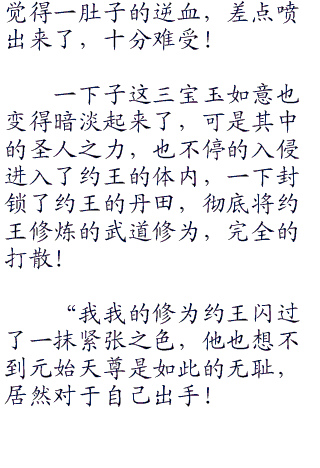 觉得一肚子的逆血，差点喷
出来了，十分难受！
一下子这三宝玉如意也
变得暗淡起来了，可是其中
的圣人之力，也不停的入侵
进入了约王的体内，一下封
锁了约王的丹田，彻底将约
王修炼的武道修为，完全的
打散！
“我我的修为约王闪过
了一抹紧张之色，他也想不
到元始天尊是如此的无耻，
居然对于自己出手！